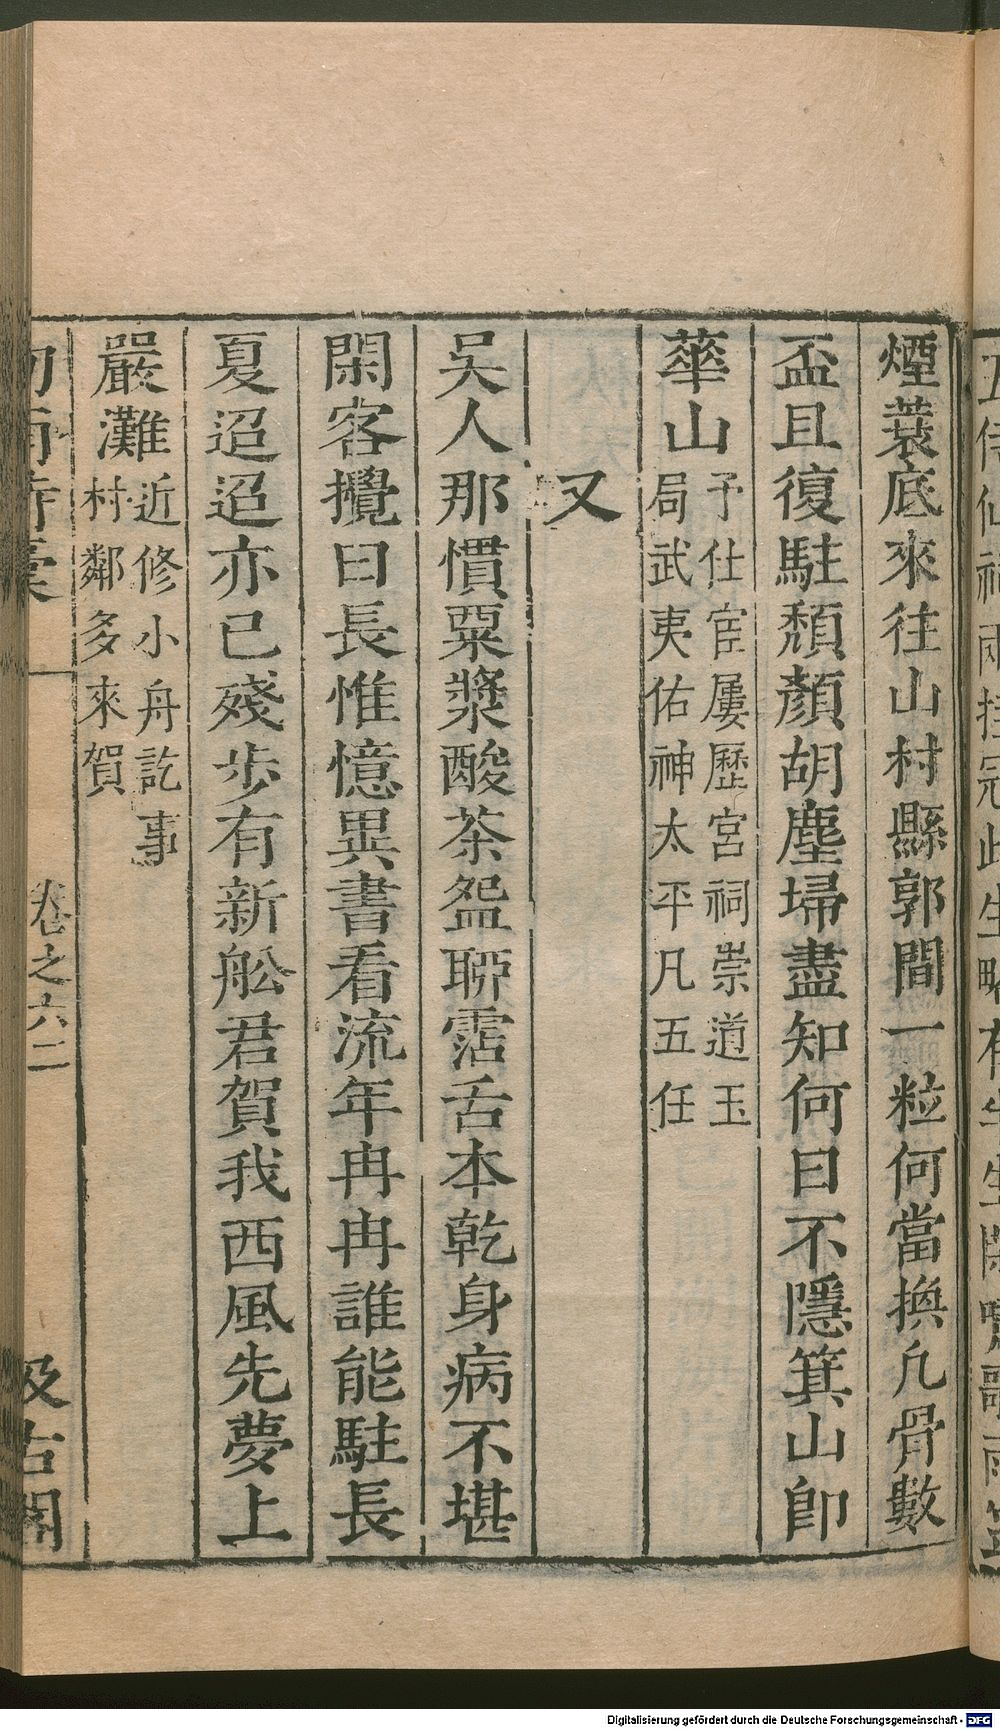 煙蓑底來往山村縣郭間一粒何當換凡骨數
盃且復駐頹顏胡塵埽盡知何日不隱箕山卽
華山予仕宦屢歷宮祠崇道玉
局武夷佑神太平凡五任
又
吳人那慣粟漿酸茶盌聊霑舌本乾身病不堪
閑客攪日長惟憶異書看流年冉冉誰能駐長
夏迢迢亦已殘步有新舩君賀我西風先夢上
嚴灘近修小舟訖事
村鄰多來賀
卷之六二
汲古閣
Digitalisierung gefördert durch die Deutsche Forschungsgemeinschaft - DFG